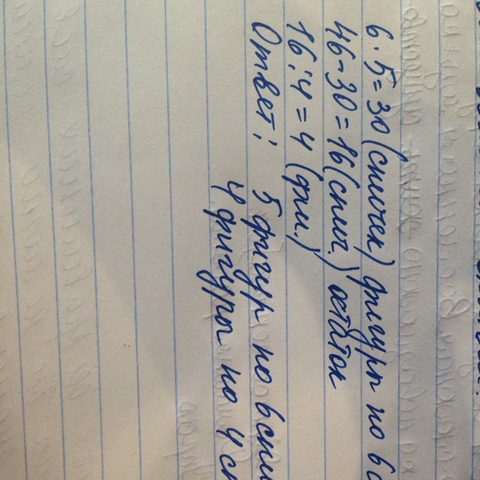 6·5=30(спичек) фигуры по 6с
46-30=16(спич.) остаток
16:4=4 (фи.)
Ответ: 5 фигур по 6спи
4 фигуры по 4 сп